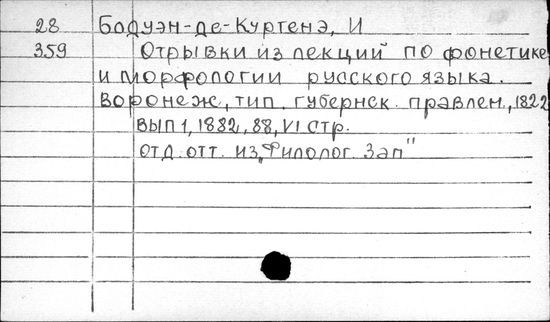 28 Бодуэн-де-Куртенэ, И
359 Отрывки из лекций по фонетике
и морфологии русского языка.
Воронеж, тип. губернск. правлен., 1822
вып 1, 1882, 88, VI стр.
Отд. отт. из „Филолог. Зап"